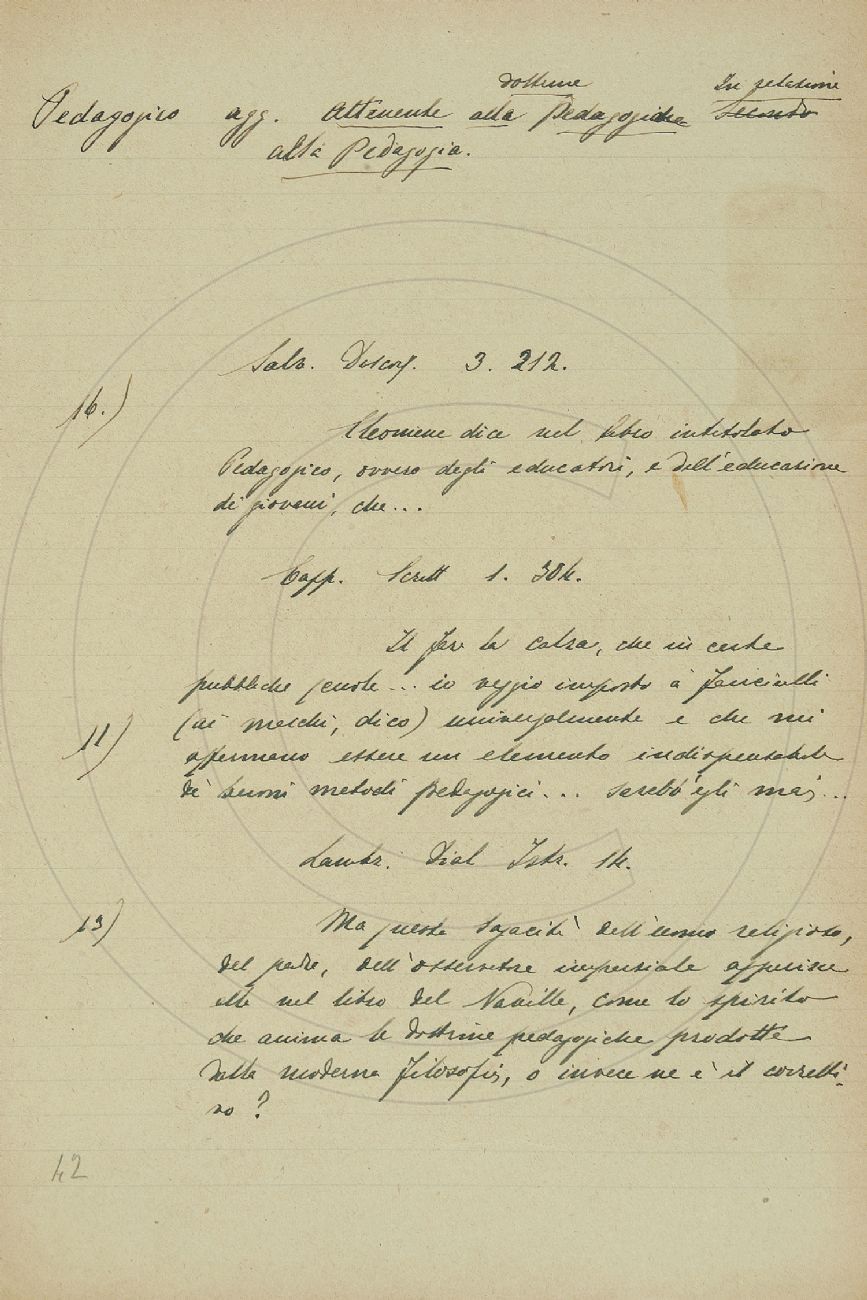 dottrine In relazione
Pedagogico agg. Attenente alla Pedagogiche Secondo
alla Pedagogia.
Salv. Discors. 3. 212.
16.)
Cleomene dice nel libro intitolato
Pedagogico, ovvero degli educatori, e dell'educazione
de' giovani, che...
Capp. Scritt 1. 304.
Il far la calza, che in certe
pubbliche scuole... io veggio imposto a' fanciulli
(ai maschi, dico) universalmente e che mi
11)
affermano essere un elemento indispensabile
de' buoni metodi pedagogici... sarebb'egli mai...
Lambr. Dial Istr. 14.
13)
Ma questa sagacità dell'uomo religioso,
del padre, dell'osservatore imparziale apparisce
ella nel libro del Naville, come lo spirito
che anima le dottrine pedagogiche prodotte
dalla moderna filosofia, o invece ne è il corretti-
vo?
42